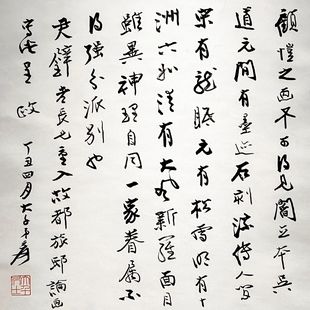 顧愷之画不可得見閻立本吳
道元閒有墨迹石刻流傳人間
宋有龍眠元有松雪明有十
洲六如清有大新羅面目
雖異神理自同一家眷屬不
得強分派別也
尹老長兄重入故都旅邸論画
寫此呈政 丁丑四月大千爰